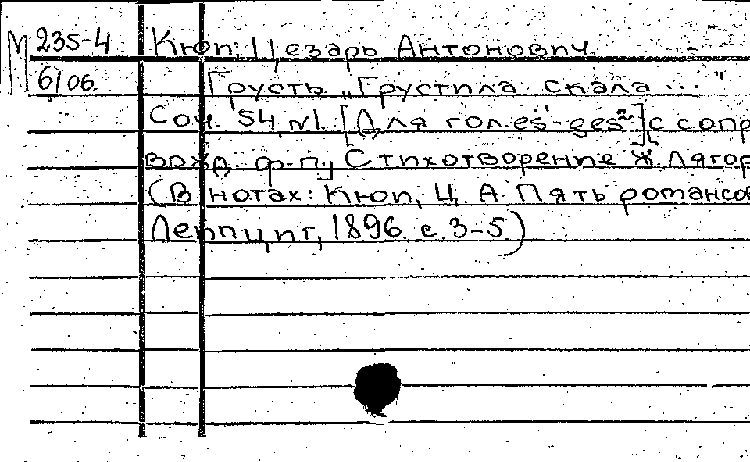 М 235-4 Кюи, Цезарь Антонович.
6/06. Грусть „Грустила скала ..."
Соч. 54, №1. [Для гол. es'-ges²] с сопр
вожд. ф-п., Стихотворение Ж. Лагор
(В нотах: Кюи, Ц. А. Пять романсо
Лейпциг, 1896. с. 3-5.)